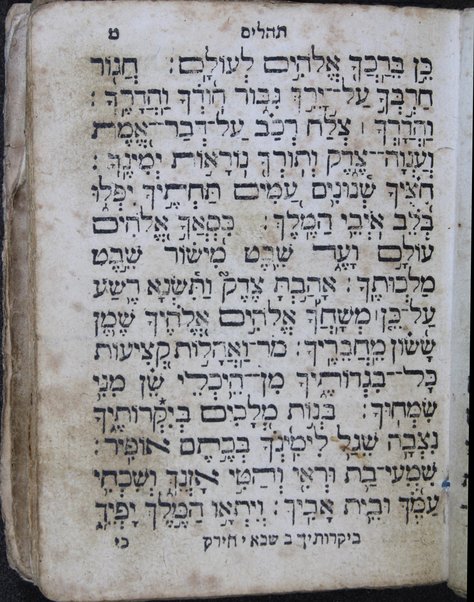 תהלים
כֵּן בֵּרַכְךָ אֱלֹהִים לְעוֹלָם: חֲגוֹר
חַרְבְּךָ עַל־יָרֵךְ גִּבּוֹר הוֹדְךָ וַהֲדָרֶךָ:
וַהֲדָרְךָ ׀ צְלַח רְכַב עַל־דְּבַר־אֱמֶת
וְעַנְוָה־צֶדֶק וְתוֹרְךָ נוֹרָאוֹת יְמִינֶךָ:
חִצֶּיךָ שְׁנוּנִים עַמִּים תַּחְתֶּיךָ יִפְּלוּ
בְּלֵב אוֹיְבֵי הַמֶּלֶךְ: כִּסְאֲךָ אֱלֹהִים
עוֹלָם וָעֶד שֵׁבֶט מִישׁוֹר שֵׁבֶט
מַלְכוּתֶךָ: אָהַבְתָּ צֶּדֶק וַתִּשְׂנָא רֶשַׁע
עַל־כֵּן ׀ מְשָׁחֲךָ אֱלֹהִים אֱלֹהֶיךָ שֶׁמֶן
שָׂשׂוֹן מֵחֲבֵרֶיךָ: מֹר־וַאֲהָלוֹת קְצִיעוֹת
כָּל־בִּגְדוֹתֶיךָ מִן־הֵיכְלֵי שֵׁן מִנִּי
שִׂמְּחוּךָ: בְּנוֹת מְלָכִים בְּיִקְּרוֹתֶיךָ
נִצְּבָה שֵׁגַל לִימִינְךָ בְּכֶתֶם אוֹפִיר:
שִׁמְעִי־בַת וּרְאִי וְהַטִּי אָזְנֵךְ וְשִׁכְחִי
עַמֵּךְ וּבֵית אָבִיךְ: וְיִתְאָו הַמֶּלֶךְ יָפְיֵךְ
ביקרותיך ב שבא י חירק כי